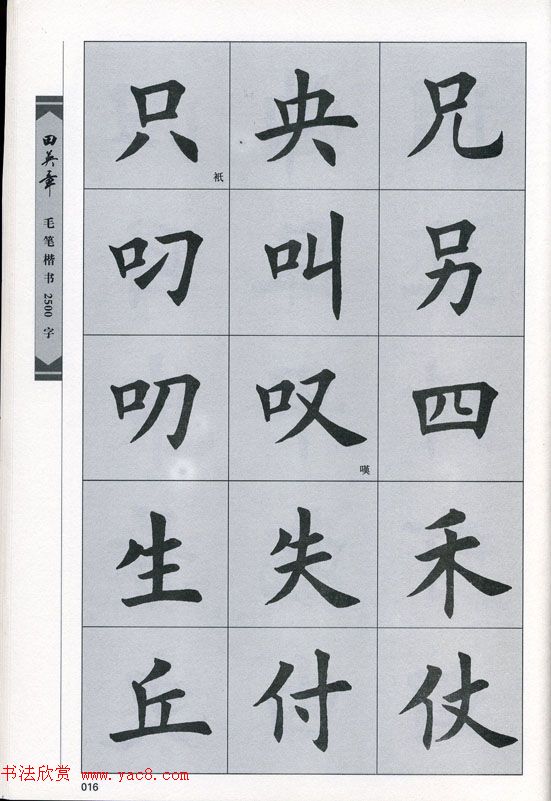 田英章
毛笔楷书2500字
只 衹 央 兄
叼 叫 另
叨 叹 嘆 四
生 失 禾
丘 付 仗
书法欣赏 www.yac8.com
016